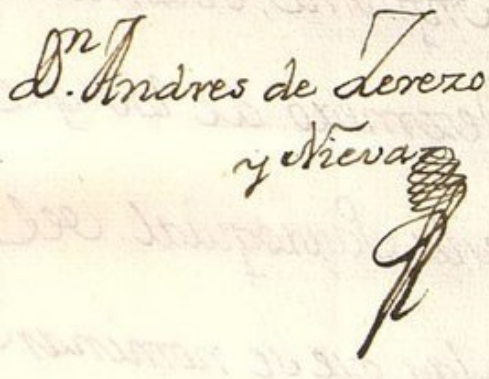 Dn. Andres de Zerezo
y Nieva